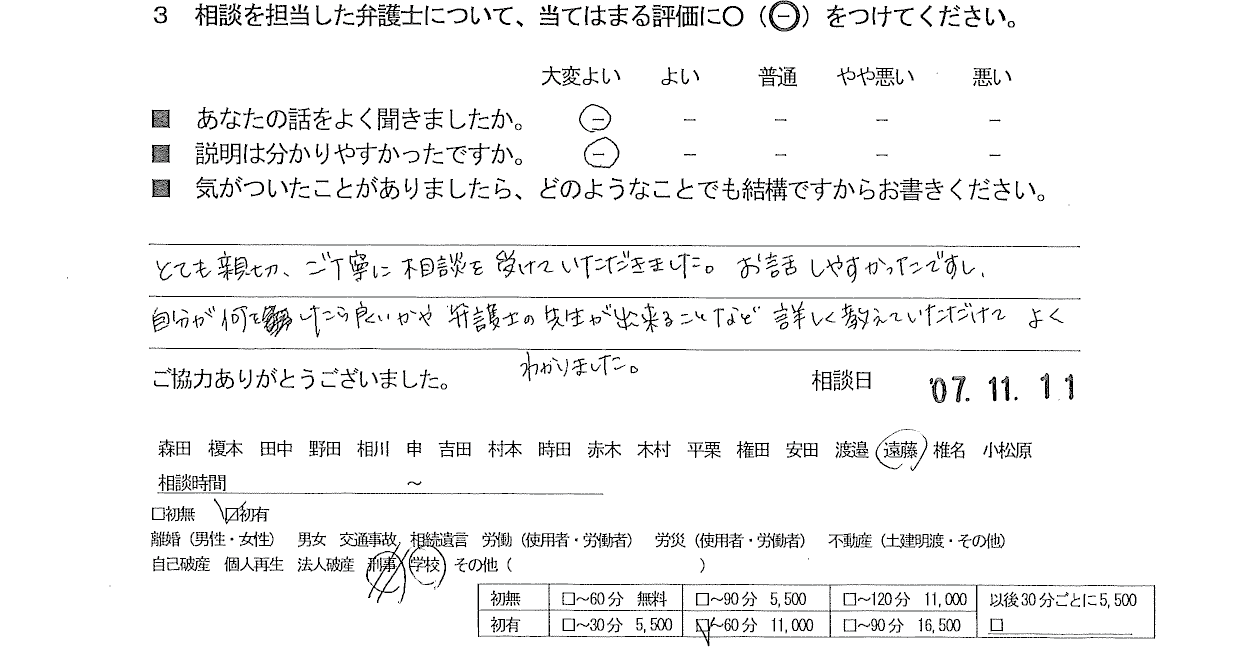 3 相談を担当した弁護士について、当てはまる評価に○（㊀）をつけてください。
大変よい よい 普通 やや悪い 悪い
■ あなたの話をよく聞きましたか。 － － － － －
■ 説明は分かりやすかったですか。 － － － － －
■ 気がついたことがありましたら、どのようなことでも結構ですからお書きください。
とても親切、ご丁寧に相談を受けていただきました。お話しやすかったですし、
自分が何をしたら良いかや弁護士の先生が出来ることなど詳しく教えていただけてよく
わかりました。
ご協力ありがとうございました。 相談日 '07.11.11
森田 榎本 田中 野田 相川 申 吉田 村本 時田 赤木 木村 平栗 権田 安田 渡邉 遠藤 椎名 小松原
相談時間 ～
□初無 ☑初有
離婚（男性・女性） 男女 交通事故 相続遺言 労働（使用者・労働者） 労災（使用者・労働者） 不動産（土建明渡・その他）
自己破産 個人再生 法人破産 刑事 学校 その他（ ）
初無 □～60分 無料 □～90分 5,500 □～120分 11,000 以後30分ごとに5,500
初有 □～30分 5,500 ☑～60分 11,000 □～90分 16,500 □